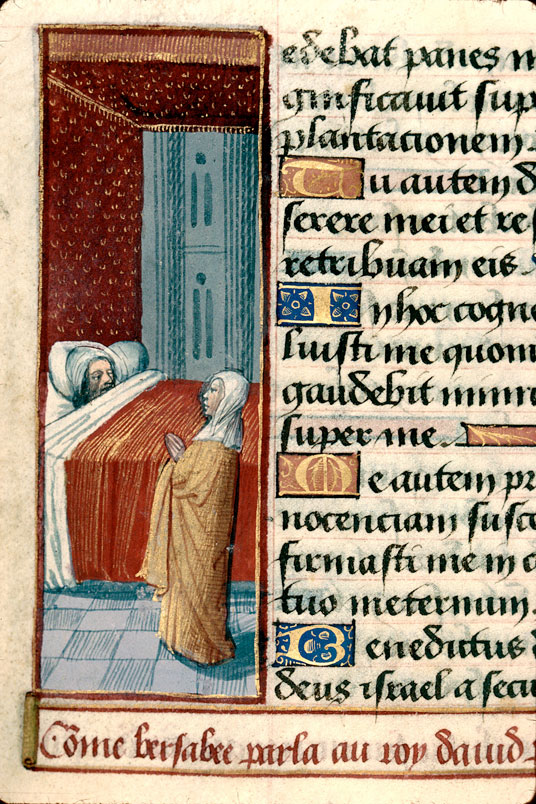 edebat panes m
gnificauit sup
plantacionem
Tu autem d
serere mei et re
retribuam eis
In hoc cogno
luisti me quoni
gaudebit inimi
super me.
Me autem pr
nocenciam susce
firmasti me in c
tuo in eternum.
Benedictus d
deus israel a secu
Come bersabee parla au roy dauid